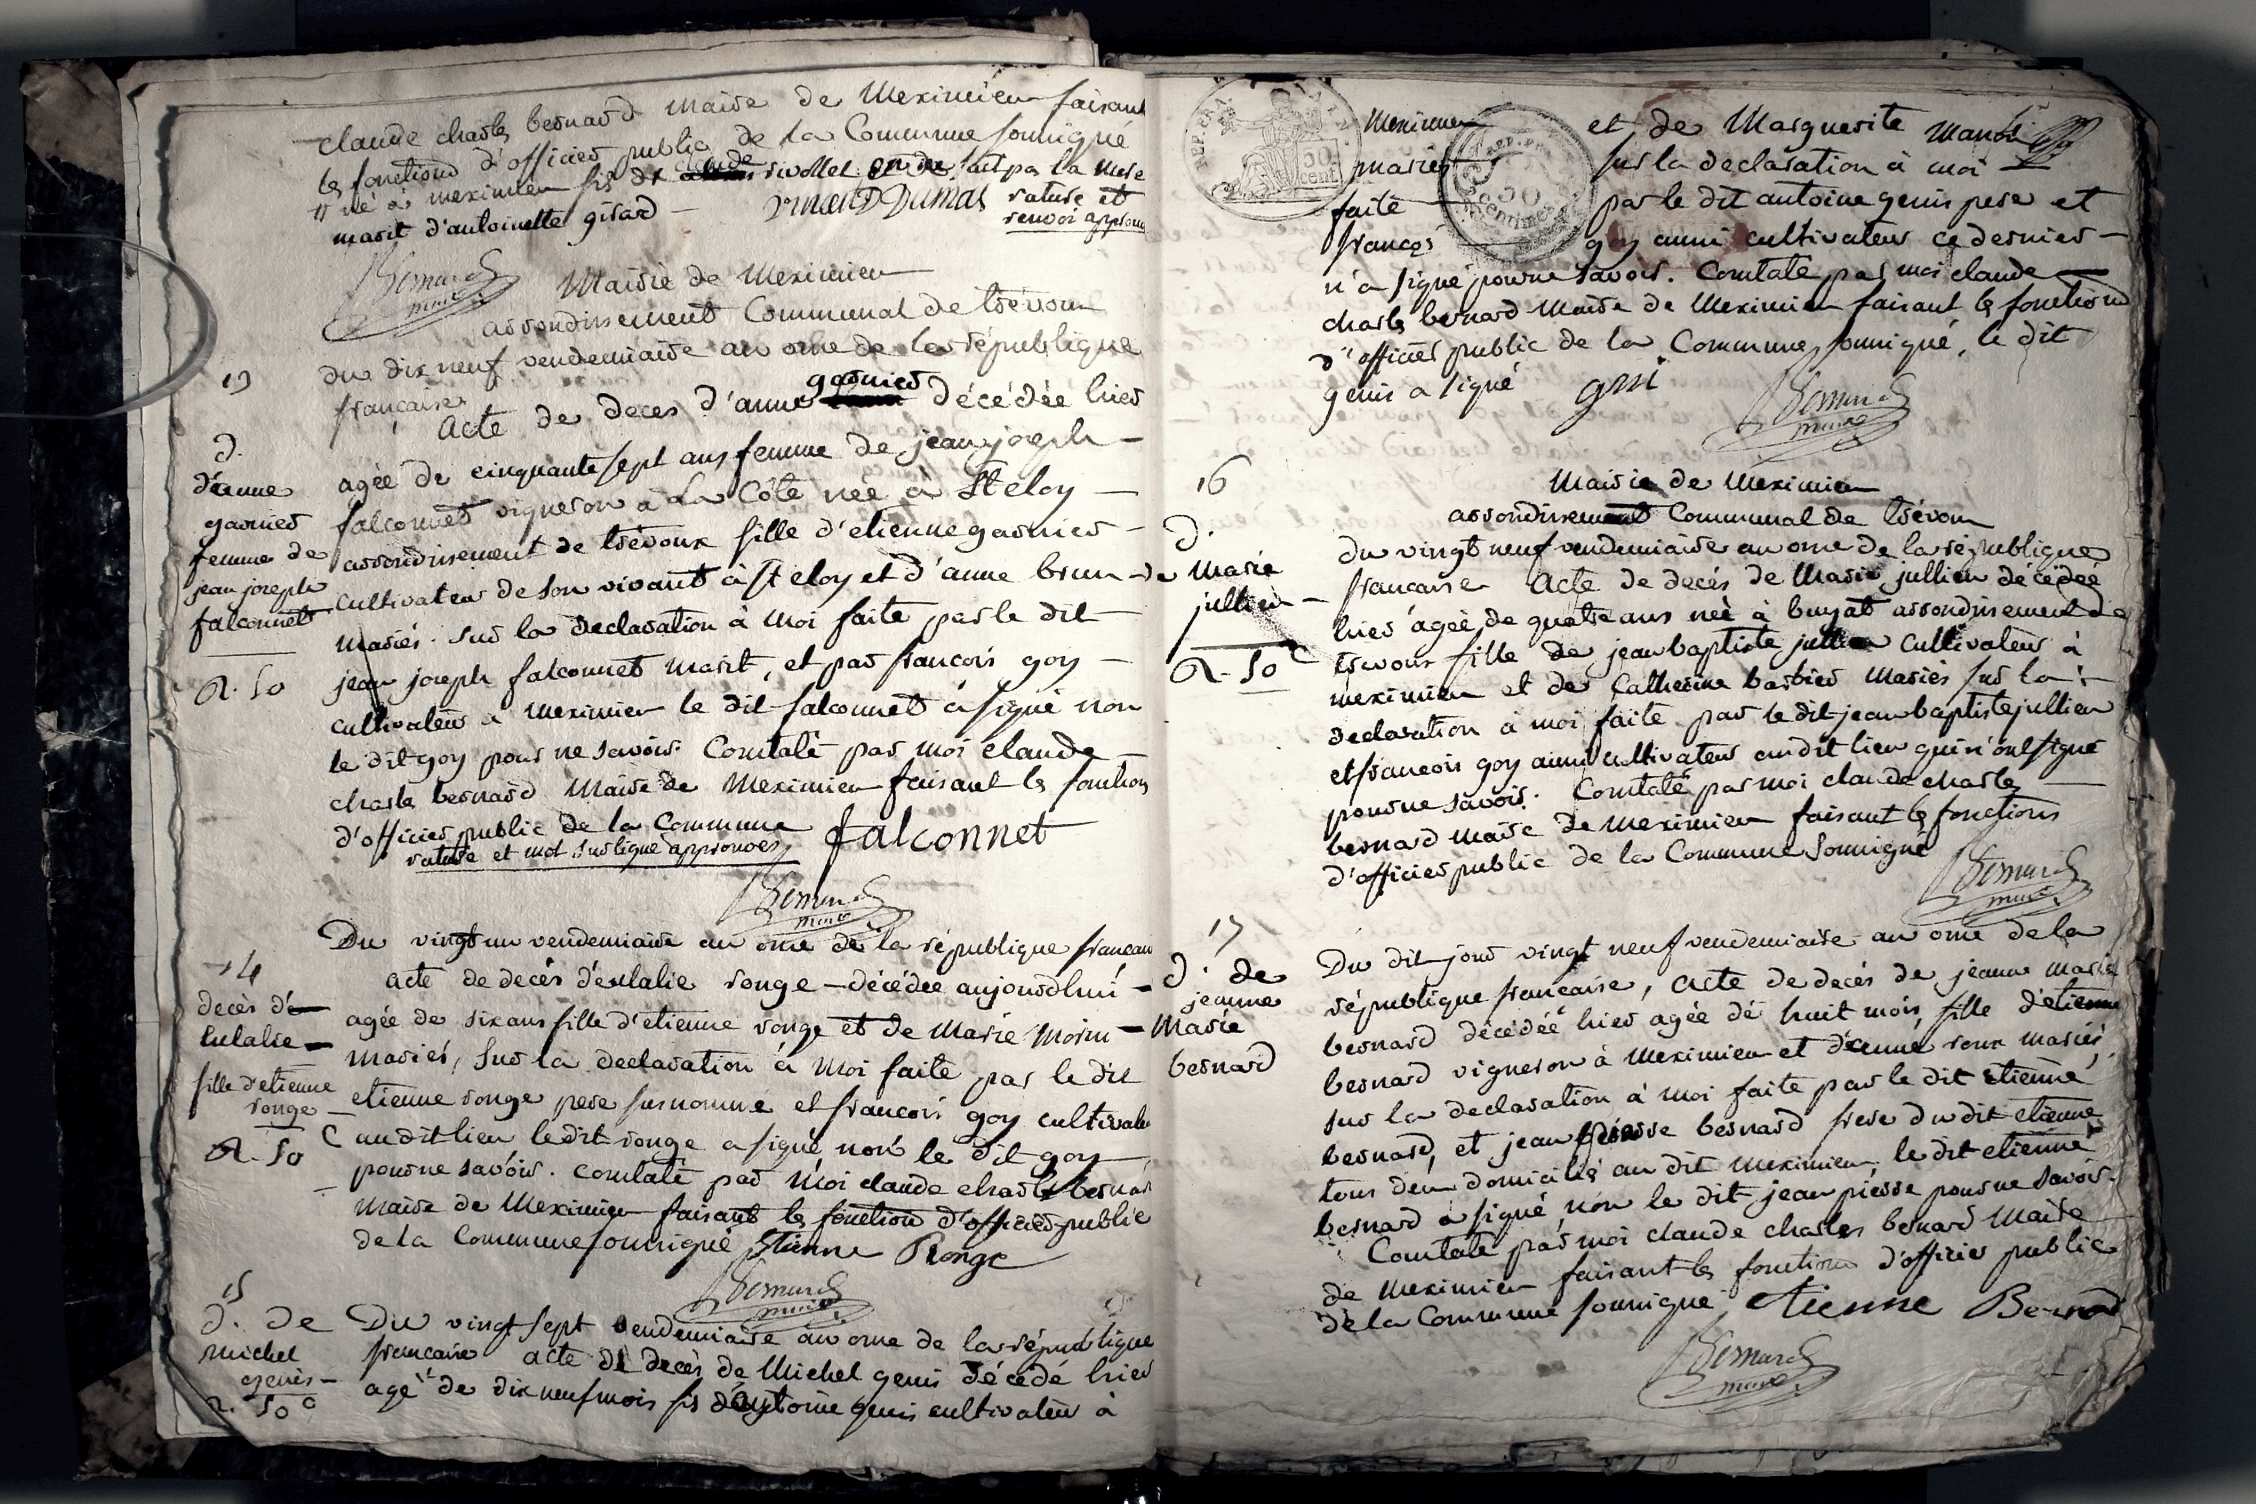 claude charles bernard maire de Meximieu faisant
les fonctions d'officier public de la Commune soussigné
né à meximieu fils de claude rivollet
marit d'antoinette girard
rature et
renvoi approuvé
Bernard
maire
Mairie de Meximieu
arrondissement Communal de trévoux
13
du dix neuf vendemiaire an onze de la république
française
garnier
Acte de deces d'anne décédée hier
d.
d'anne
garnier
femme de
jean joseph
falconnet
R. 50
agée de cinquante sept ans femme de jean joseph
falconnet vigneron à La Côte née à St eloy
arrondissement de trévoux fille d'etienne garnier
cultivateur de son vivant à St eloy et d'anne brun
mariés. sur la declaration à moi faite par le dit
jean joseph falconnet marit, et par francois goy
cultivateur a meximieu le dit falconnet a signé non
le dit goy pour ne savoir. Constaté par moi claude
charles bernard Maire de Meximieu faisant les fonctions
d'officier public de la Commune
rature et mot surligné approuvés
falconnet
Bernard
maire
14
decès d'
Eulalie
fille d'etienne
ronge
R. 50 C
Du vingt un vendemiaire an onze de la république francaise
acte de decès d'eulalie ronge décédée aujourdhui
agée de six ans fille d'etienne ronge et de Marie Morin
mariés, sur la declaration à moi faite par le dit
etienne ronge pere surnommé et francois goy cultivateur
audit lieu le dit ronge a signé non le dit goy
pour ne savoir. constaté par moi claude charles bernard
maire de Meximieu faisant les fonction d'officier public
de la Commune soussigné Etienne Ronge
Bernard
maire
15
d. de
michel
genis
R. 50 c
Du vingt sept vendemiaire an onze de la république
francaise acte de decès de Michel genis décédé hier
agé de dix neuf mois fils d'antoine genis cultivateur à
Meximieu et de Marguerite
mariés sur la declaration à moi
faite par le dit antoine genis pere et
françois goy aussi cultivateur ce dernier
n'a signé pour ne savoir. Constaté par moi claude
charles bernard Maire de Meximieu faisant les fonctions
d'officier public de la Commune soussigné, le dit
genis a signé
Bernard
maire
REP. FRA.
50
cent.
50
centimes
16
d.
de Marie
jullien
R. 50 C
Mairie de Meximieu
arrondissement Communal de trévoux
du vingt neuf vendemiaire an onze de la république
francaise Acte de decés de Marie jullien décédée
hier agée de quatre ans née à buyat arrondissement de
trevoux fille de jean baptiste jullien cultivateur à
meximieu et de Catherine barbier mariés sur la
declaration à moi faite par le dit jean baptiste jullien
et francois goy aussi cultivateur audit lieu qui n'ont signé
pour ne savoir. Constaté par moi claude charles
bernard maire de Meximieu faisant les fonctions
d'officier public de la Commune soussigné
Bernard
maire
17
d. de
jeanne
Marie
bernard
Du dit jour vingt neuf vendemiaire an onze de la
république francaise, acte de decés de jeanne marie
bernard décédée hier agée de huit mois, fille d'etienne
bernard vigneron à Meximieu et d'anne roux mariés,
sur la declaration à moi faite par le dit etienne
bernard, et jean pierre bernard frere du dit etienne
tous deux domiciliés au dit meximieu, le dit etienne
bernard a signé non le dit jean pierre pour ne savoir.
Constaté par moi claude charles bernard Maire
de Meximieu faisant les fonctions d'officier public
de la Commune soussigné, etienne Bernard
Bernard
maire